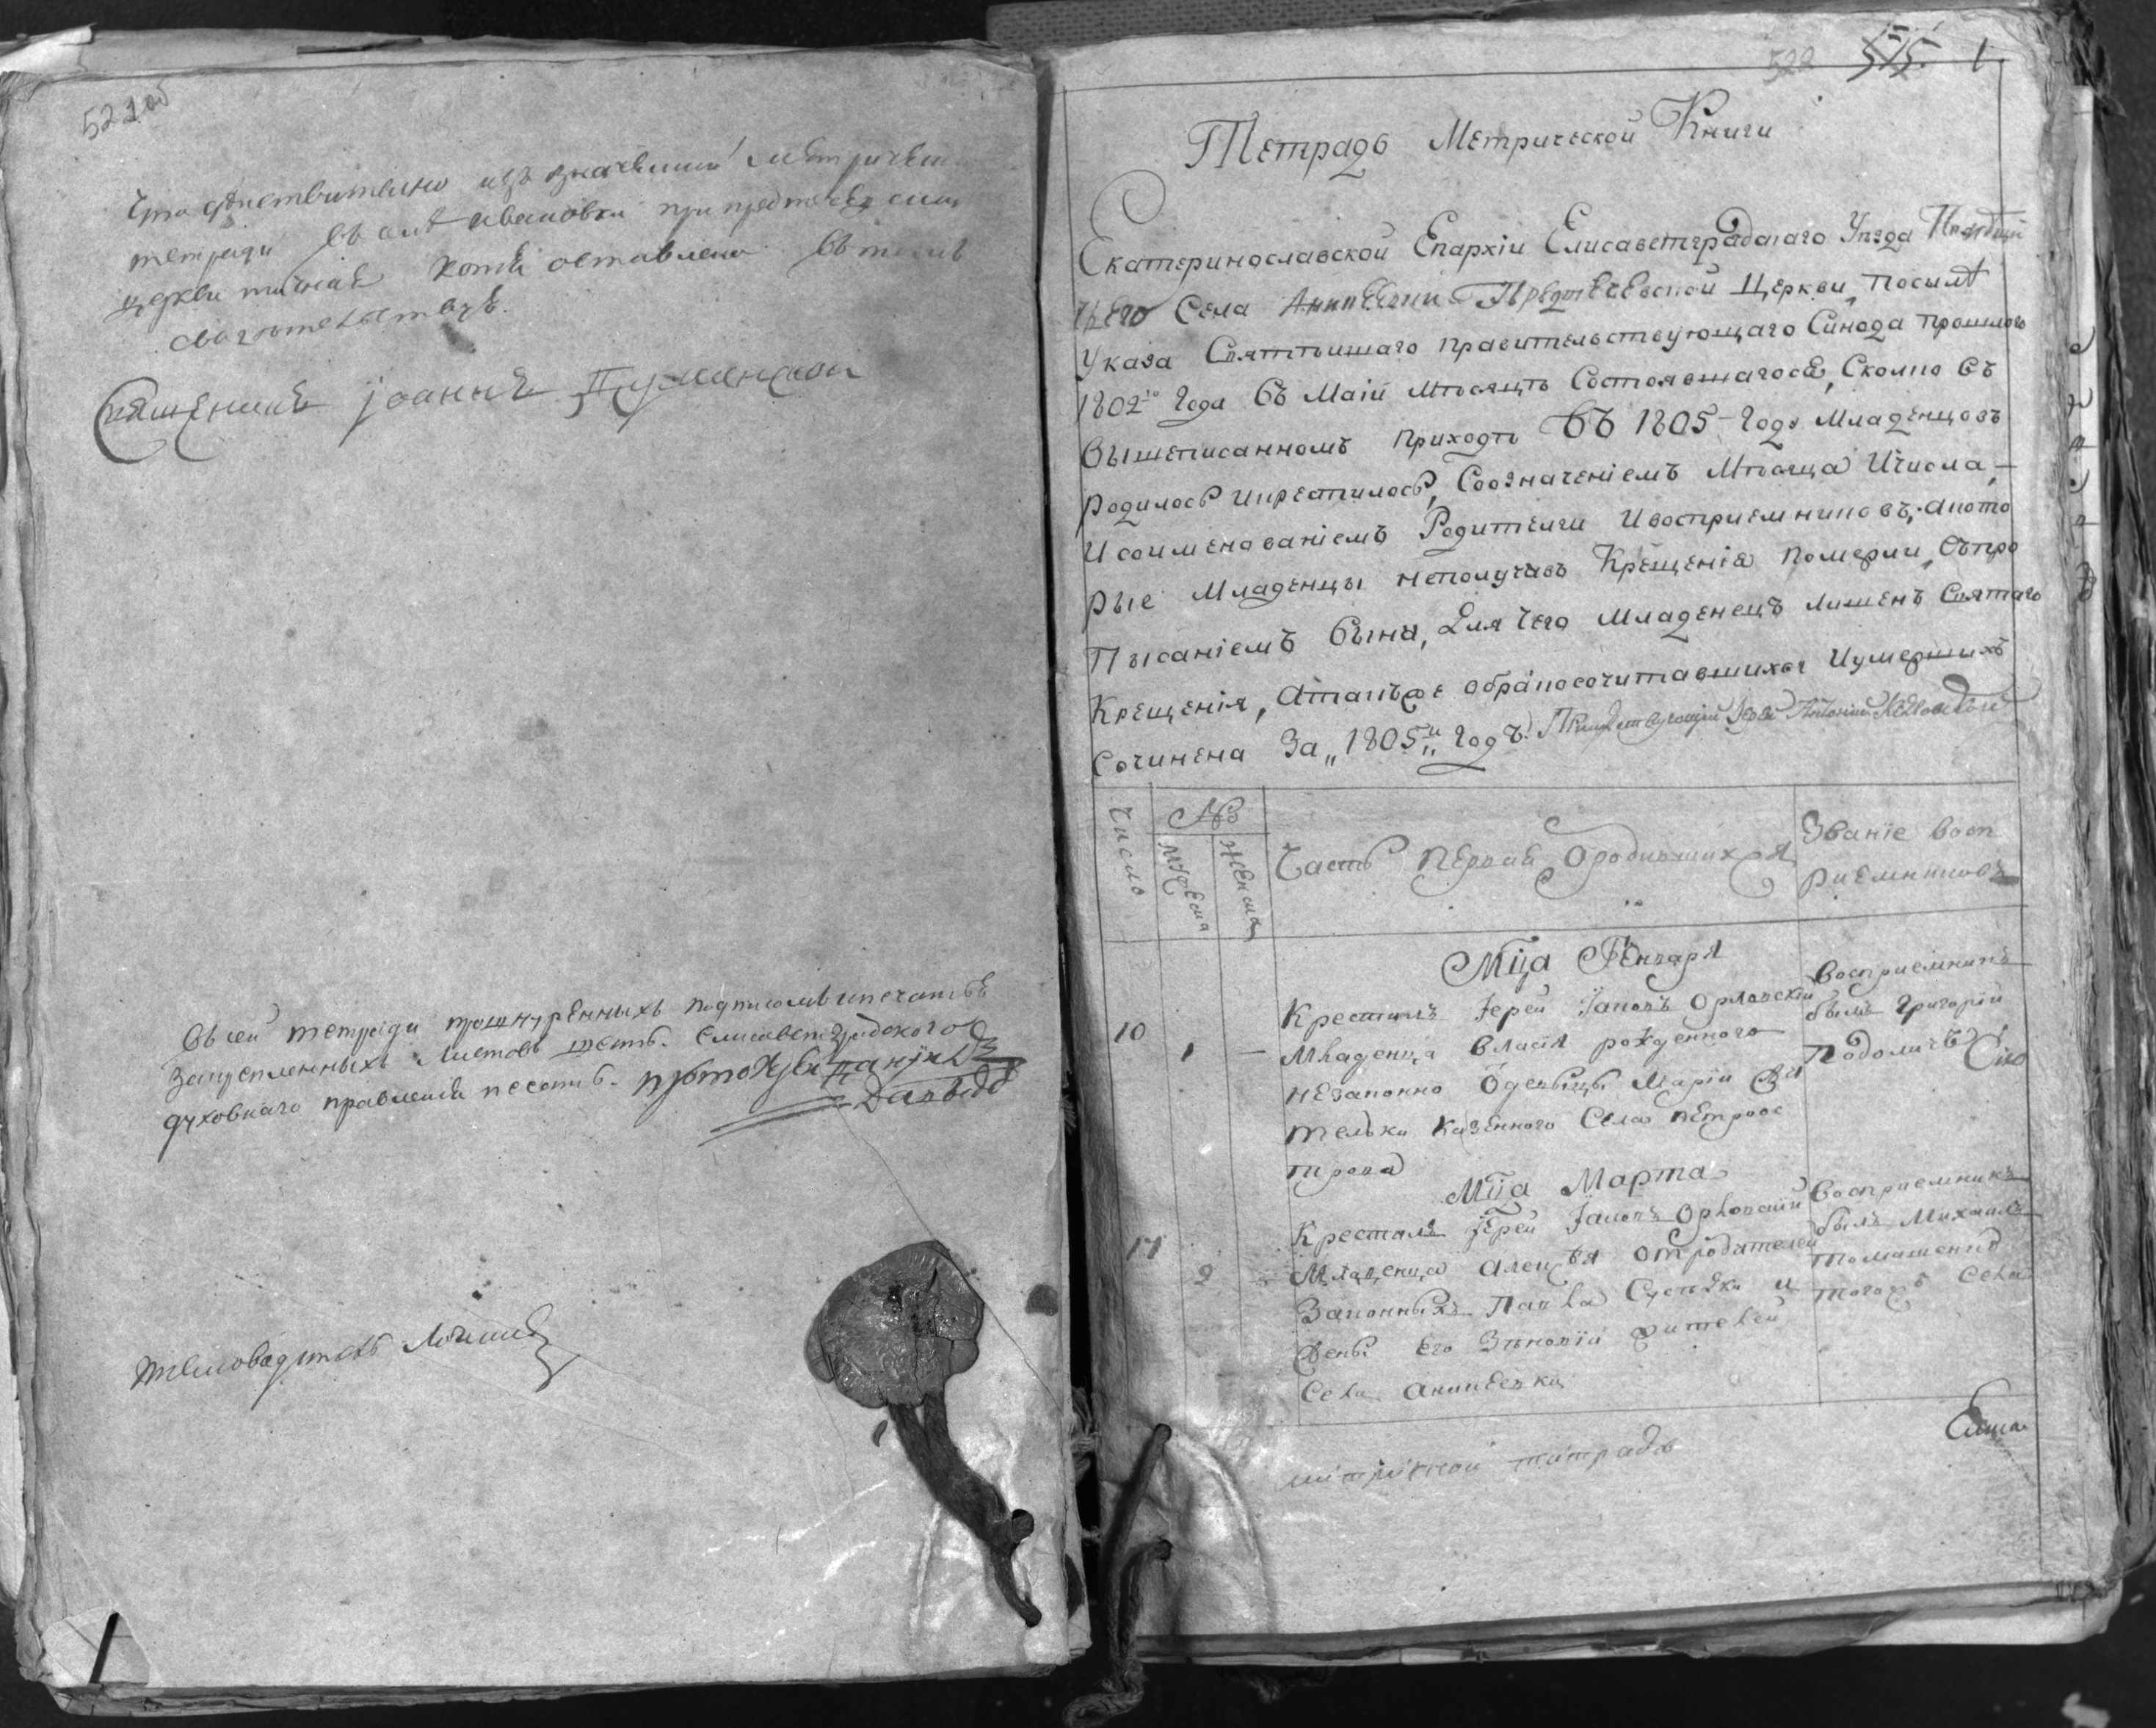 521об
Что действительно изъ значенний метричес
тетради въ селѣ Ивановки при предтечев
церкви точная копѣя оставлена въ томъ
свидетельствую.
Священникъ Іоаннъ
Въ сей тетради прошнуренныхъ подписомъ и печатью
закрепленныхъ листовъ шесть. Елисаветградского
духовнаго правления песать.
522 515 1
Тетрадь Метрической Книги
Екатеринославской Епархіи Елисаветградскаго Уѣзда
Села Аннинской Предтечевской Церкви, посилѣ
Указа Святѣйшаго правительствующаго Синода прошлого
1802го Года въ Маіи Мѣсяцѣ Состоявшагося, Сколко въ
вышеписанномъ приходѣ въ 1805 Году Младенцовъ
родилось икрестилось, Соозначеніемъ Мѣсяца Ичисла,
Исоименованіемъ Родителей Ивосприемниковъ, акото
рые Младенцы неполучивъ Крещенія померли, Съпро
Писаніемъ вины, Для чего Младенецъ лишенъ Святаго
Крещенія, Атакъже обракосочитавшихся Иумершихъ
Сочинена За „1805й„ Годъ.
Число
№
Мужеска
Женска
Часть первая Ородившихся
Званіе восп
риемниковъ
Мца Генваря
10
1
Крестилъ Іерей Іаковъ Орловскій
Младенца Власія рожденного
незаконно Одевыцы Маріи Жи
телки казенного Села петроос
трова
восприемникъ
былъ Григорій
Подоличъ
Мца Марта
17
2
Крестилъ Іерей Іаковъ Орловскій
Младенца Алексѣя отродителей
Законныхъ Павла и
Жены Его Зѣновіи жителей
Села Анинской
восприемникъ
былъ Михаилъ
Томашенко
тогожъ Села
метрѣчной тетрада